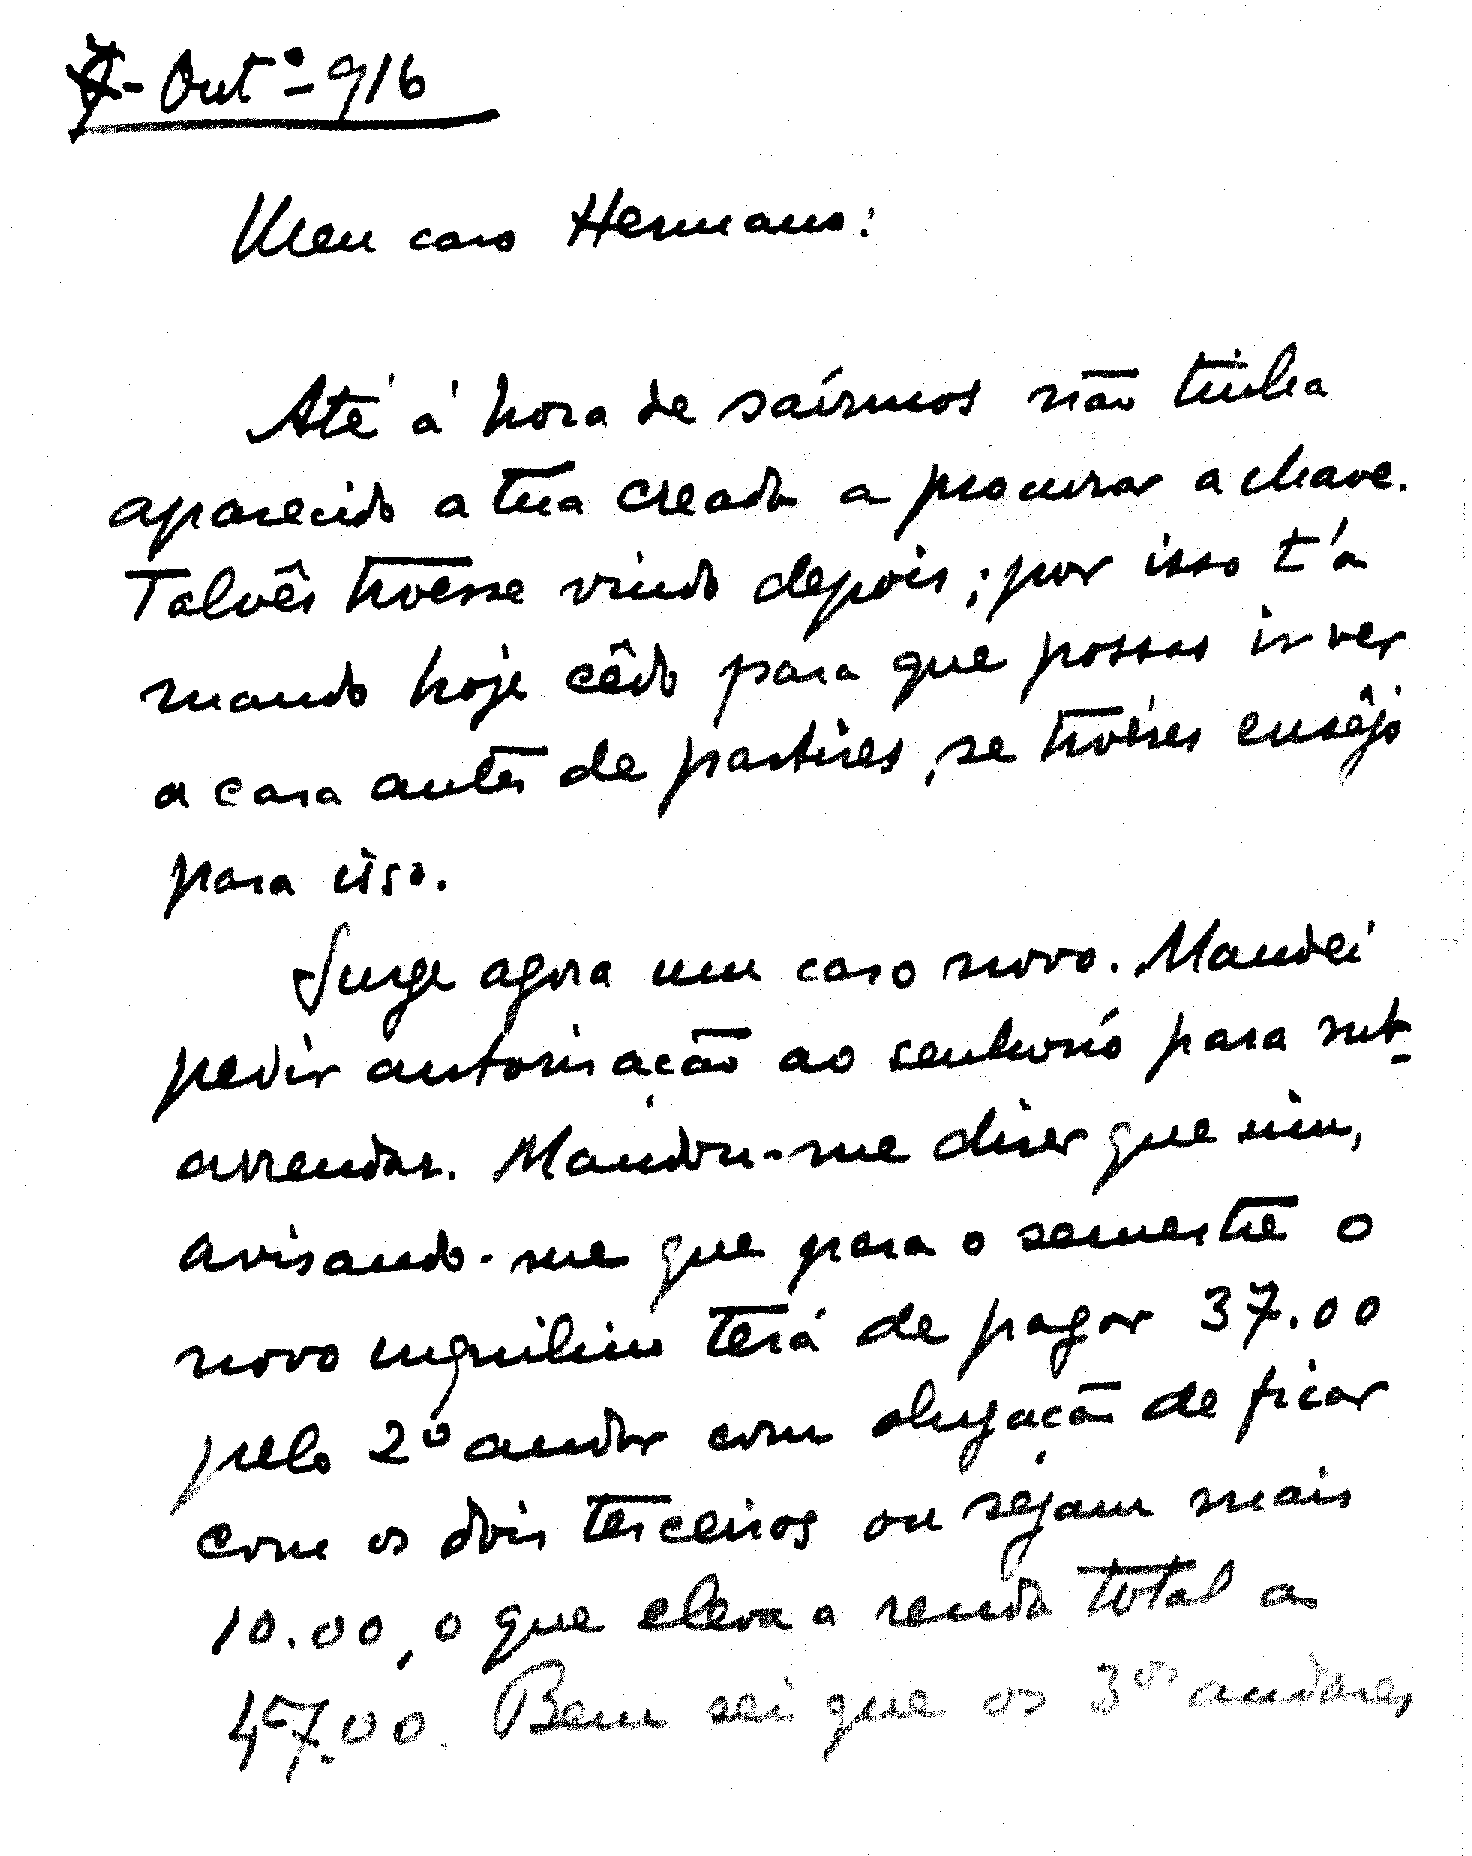 7-Outº-916
Meu caro Hermano:
Até á hora de saírmos não tinha
aparecido a tua creada a procurar a chave.
Talvês tivesse vindo depois; por isso t'a
mando hoje cêdo para que possas ir ver
a casa antes de partires, se tivéres ensêjo
para isso.
Surge agora um caso novo. Mandei
pedir autorisação ao senhorio para sub-
arrendar. Mandou-me diser que sim,
avisando-me que para o semestre o
novo inquilino terá de pagar 37.00
pelo 2º andar com obrigação de ficar
com os dois terceiros ou sejam mais
10.00, o que eleva a renda total a
47.00. Bem sei que os 3ºs andares